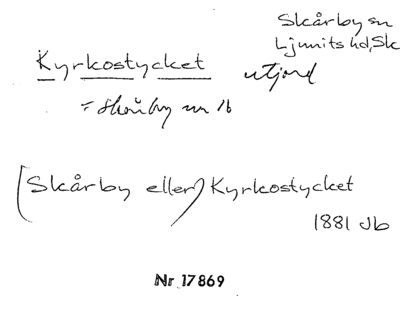 Skårby sn
Ljunits hd, Sk
Kyrkostycket utjord
= Skårby nr 16
(Skårby eller) Kyrkostycket
1881 Jb
Nr 17869